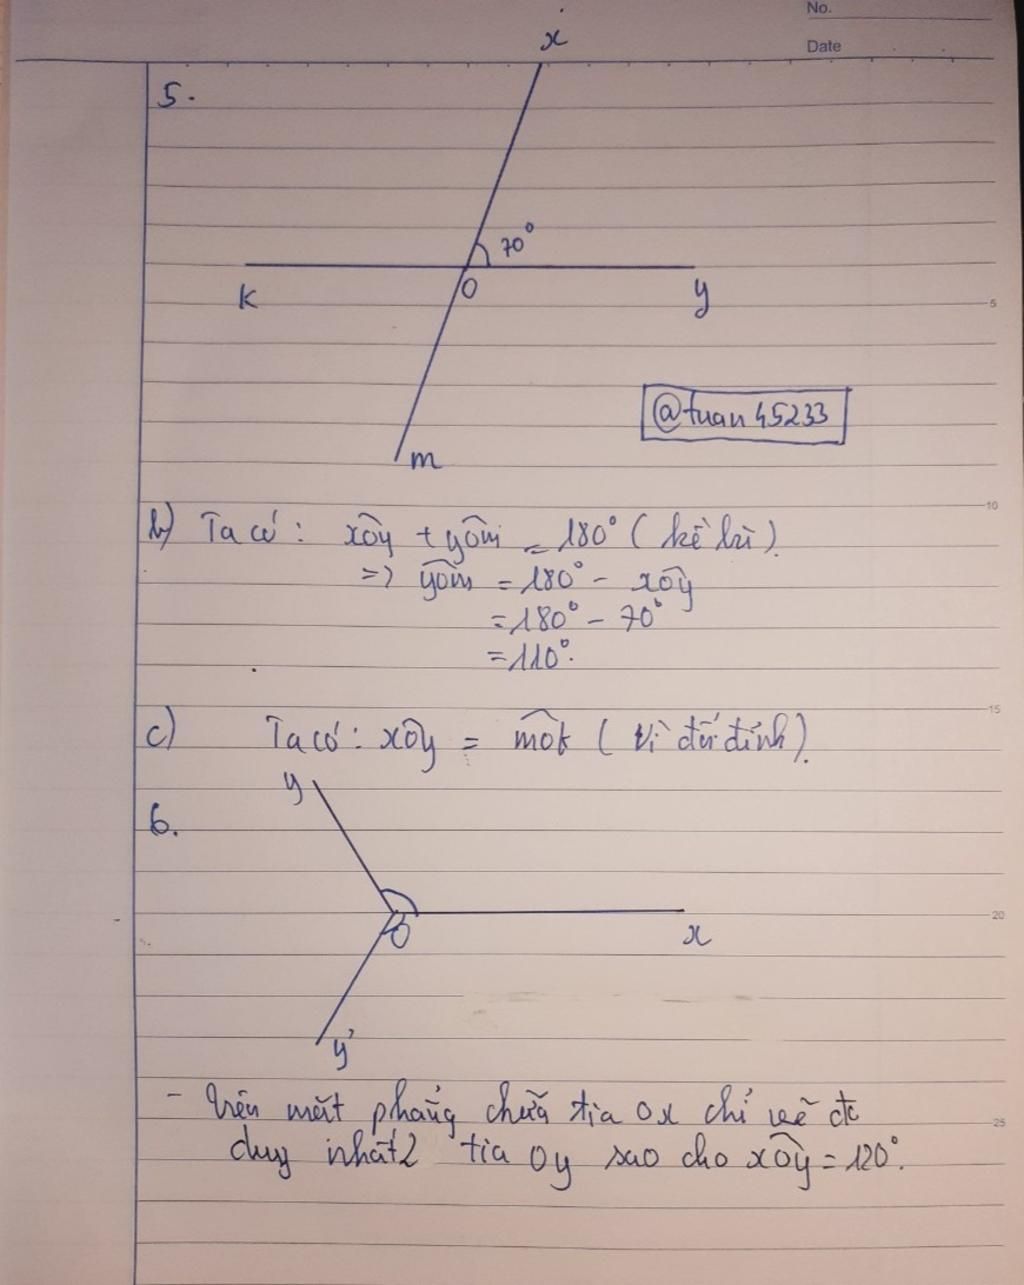 No.
Date
x
5.
70°
K
O
y
5
@tuan45233
m
10
b) Ta có: xÔy + yÔm = 180° (kề bù).
=> yÔm = 180° - xÔy
= 180° - 70°
= 110°.
15
c) Ta có: xÔy = mÔk (vì đối đỉnh).
y
6.
O
20
x
y'
- Trên mặt phẳng chứa tia Ox chỉ vẽ đc
25
duy nhất 2 tia Oy sao cho xÔy = 120°.